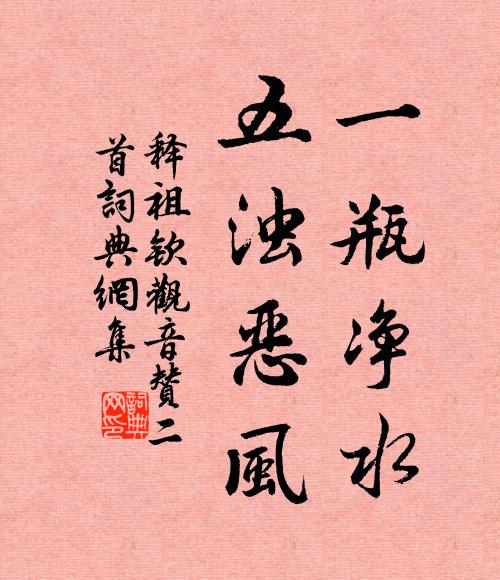 一瓶净水
五浊恶風
释祖钦觀音赞二
首詞典網集
詞典
网印